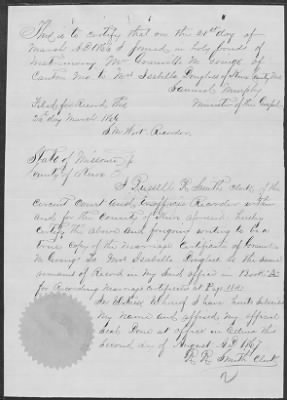 This is to certify that on the day of
March A D 1866 I joined in holy bonds of
Matrimony Mr M. Conog of
Canton Mo to Mrs Isabella Douglass of County Mo
Samuel Murphy
Filed for Record this Minister of the Gospel
day March 1866
S M Wirt Recorder
State of Missouri
County of Knox
I Russell R. Smith clerk of the
Circuit Court and Exofficio Recorder within
and for the County of Knox aforesaid hereby
certify the above and foregoing writing to be a
true copy of the Marriage Certificate of
M Conog to Mrs Isabella Douglass as the same
remains of Record in my said office in Book
for Recording Marriage Certificates at Page
In Witness Whereof I have hereto subscribed
My name and affixed my official
Seal Done at office in Edina this
Second day of August A D 1867
R. R. Smith Clerk